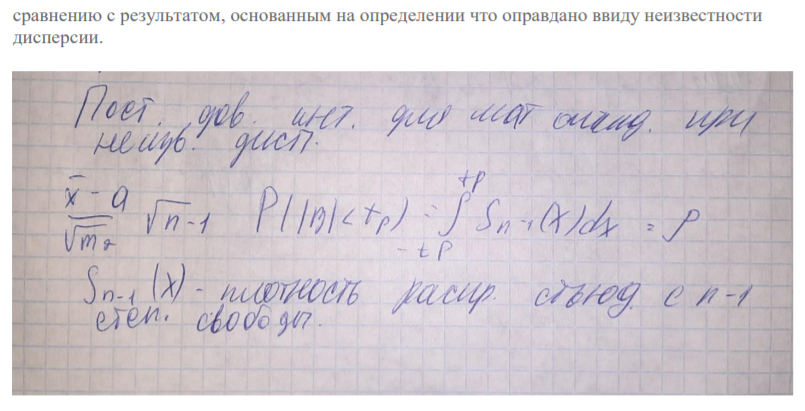 сравнению с результатом, основанным на определении что оправдано ввиду неизвестности
дисперсии.
Пост. дов. инт. для мат ожид. при
неизв. дисп.
(x̄ - a)/√m₂ √n-1 P(|B|<tp) = ∫_{-tp}^{tp} Sn-1(x)dx = p
Sn-1(x) - плотность распр. стьюд. с n-1
степ. свободы.